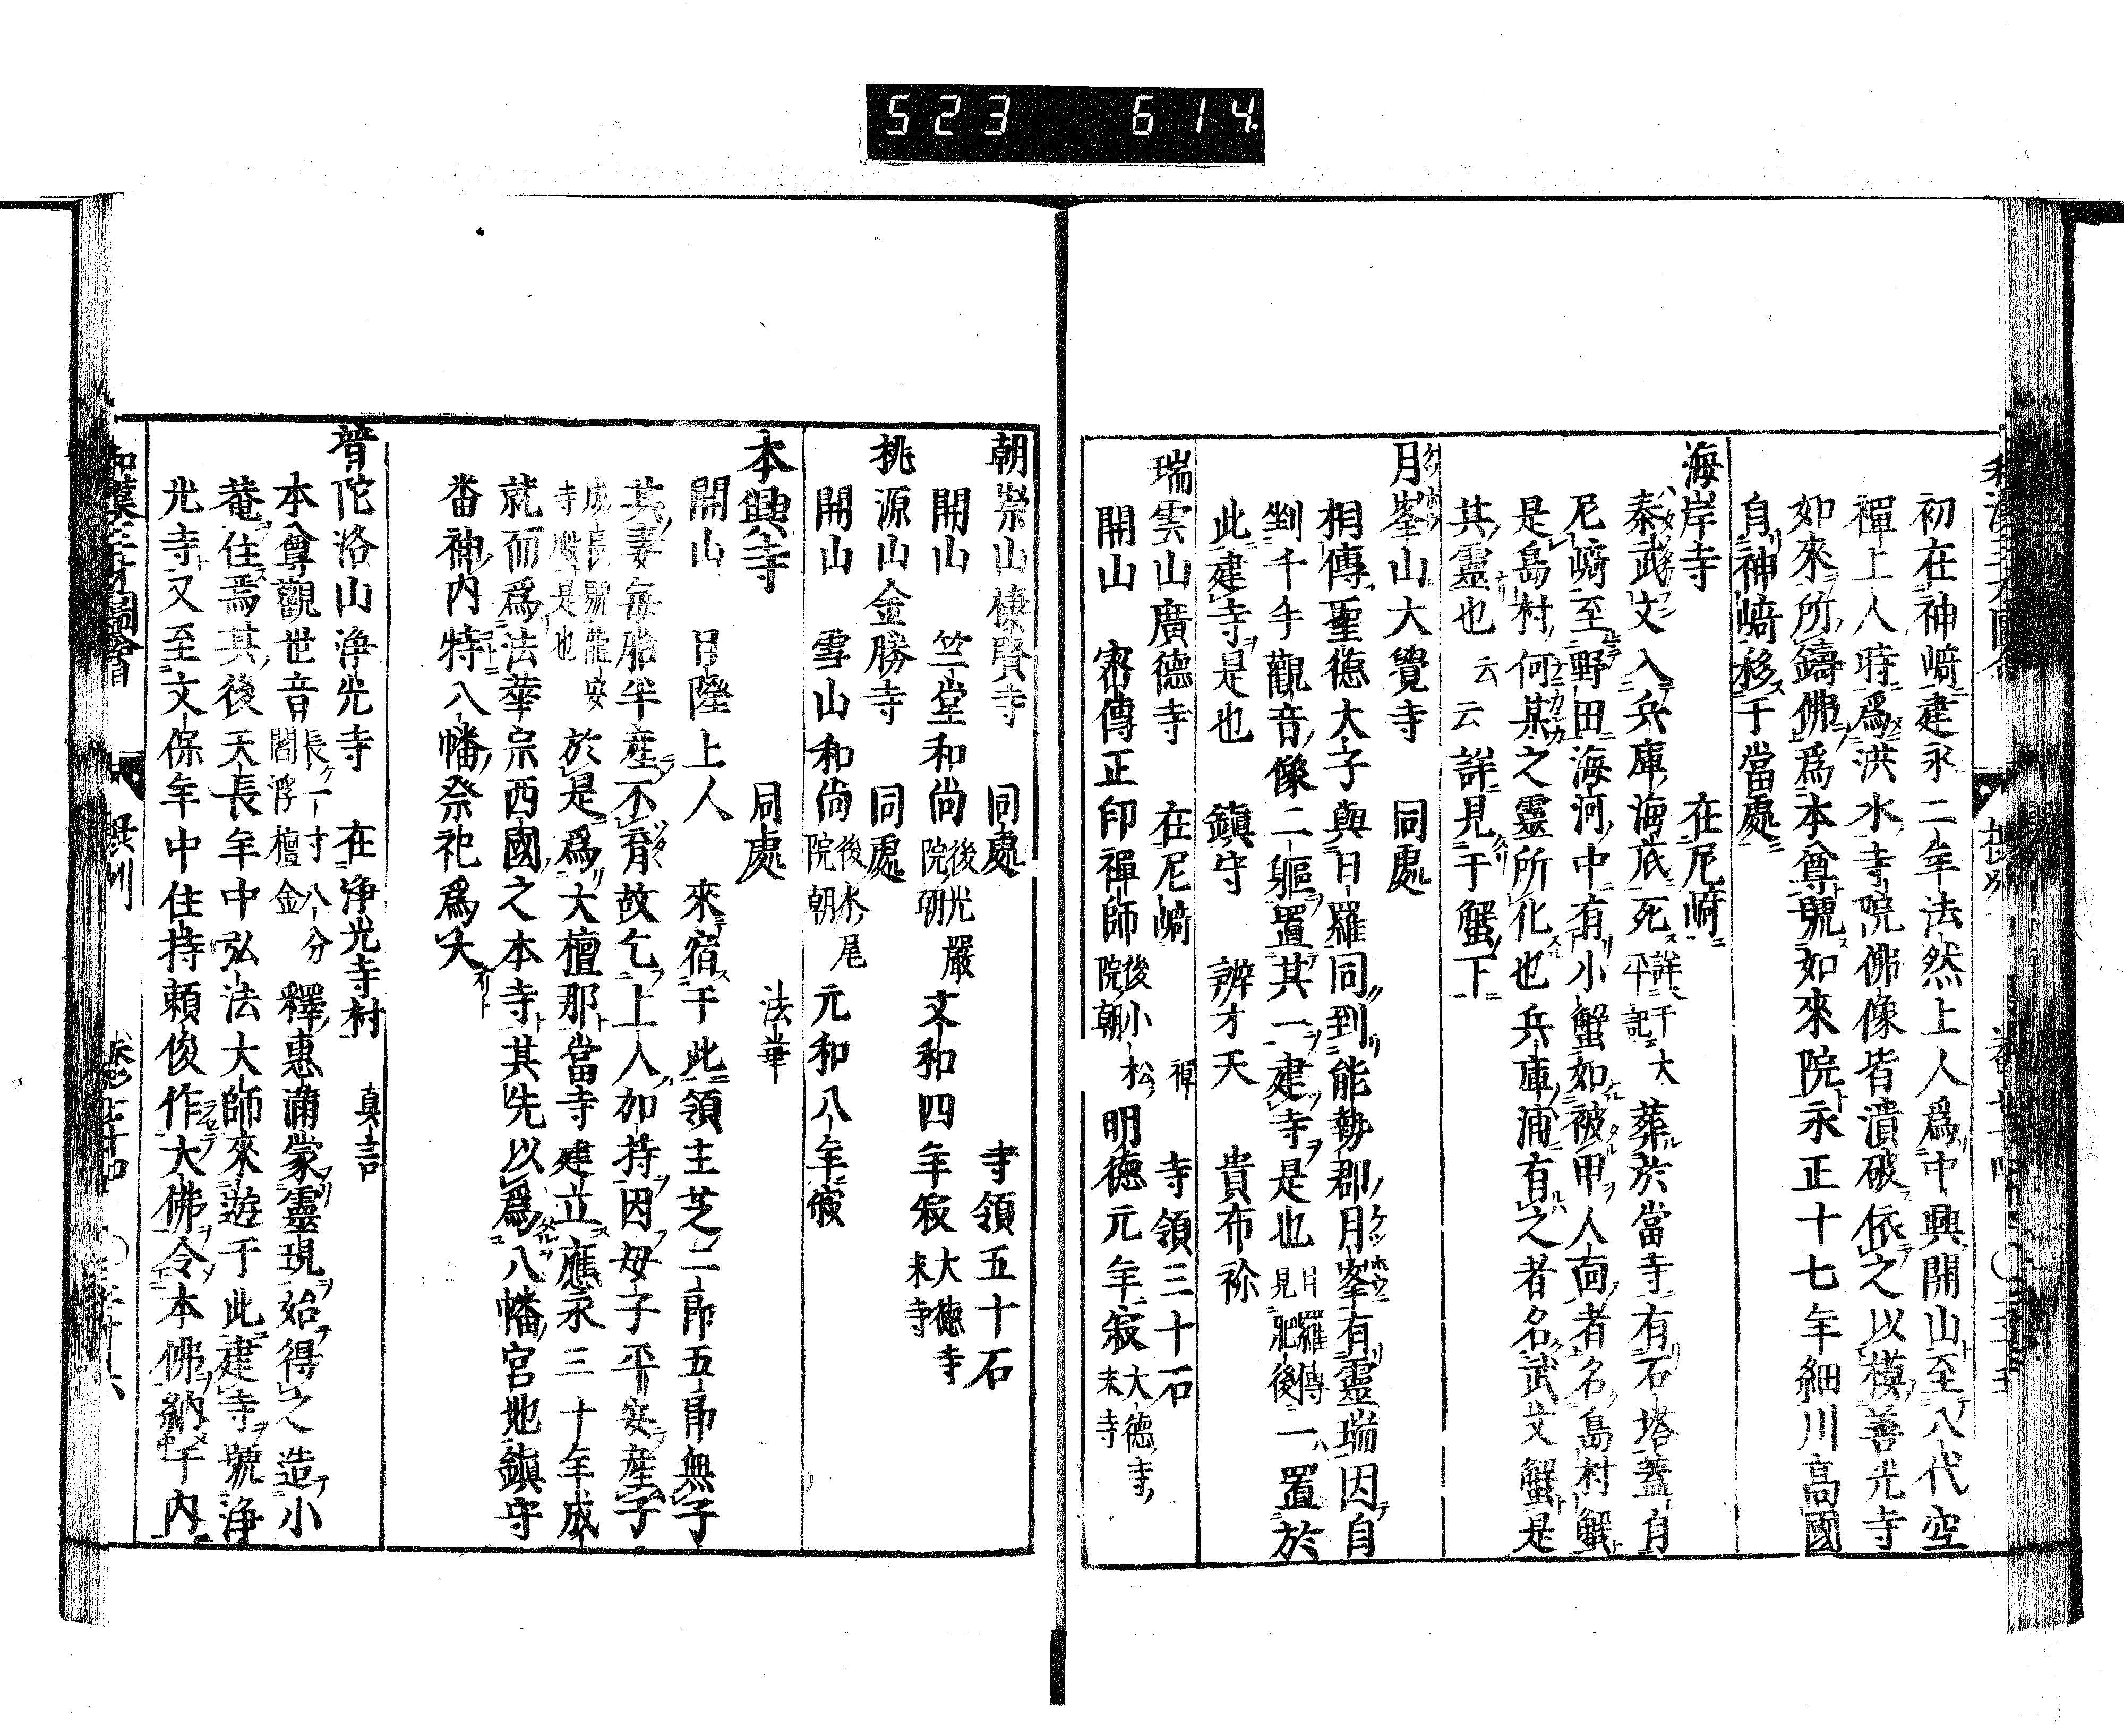 523 614
初在神﨑建永二年法然上人爲中興開山至八代空
禪上人時爲洪水寺院佛像皆潰破依之以模善光寺
如來所鑄佛爲本尊號如來院永正十七年細川高國
自神﨑移于當處
海岸寺 在尼﨑
秦武文入兵庫海底死詳于大平記葬於當寺有石塔蓋自
尼﨑至野田海河中有小蟹如被甲人面者名島村蟹
是島村何某之靈所化也兵庫浦有之者名武文蟹是
其靈也云云詳見于蟹下
月峯山大覺寺 同處
相傳聖德太子與日羅同到能勢郡月峯有靈瑞因自
剉千手觀音像二軀置其一建寺是也日羅傳見肥後一置於
此建寺是也 鎭守 辨才天 貴布祢
瑞雲山廣德寺 在尼﨑 禪 寺領三十石
開山 密傳正印禪師後小松院朝明德元年寂大德寺末寺
朝崇山棲賢寺 同處 寺領五十石
開山 竺堂和尚後光嚴院朝文和四年寂大德寺末寺
桃源山金勝寺 同處
開山 雪山和尚後水尾院朝元和八年寂
本興寺 同處 法華
開山 日隆上人 來宿于此領主芝二郎五郎無子
其妻每胎半產不育故乞上人加持因母子平安產子
成長號龍安寺殿是也於是爲大檀那當寺建立應永三十年成
就而爲法華宗西國之本寺其先以爲八幡宮地鎭守
畨神内特八幡祭祀爲大
普陀洛山淨光寺 在淨光寺村 真言
本尊觀世音長一寸八分閻浮檀金釋惠滿蒙靈現始得之造小
菴住焉其後天長年中弘法大師來遊于此建寺號淨
光寺又至文保年中住持頼俊作大佛令本佛納于内